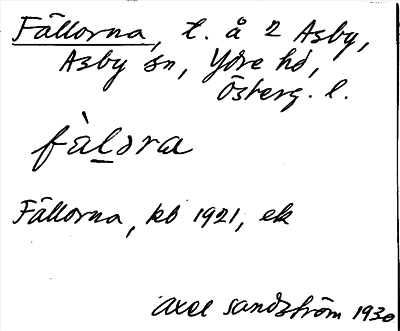 Fällorna, t. å 2 Asby,
Asby sn, Ydre hd,
Österg. l.
fàlọra
Fällorna, kb 1921, ek
Axel Sandström 1930